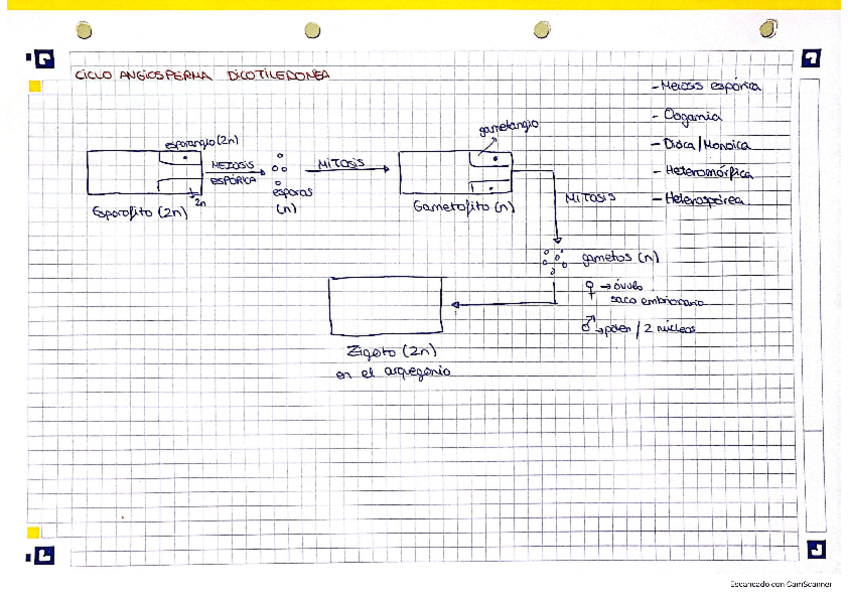 CICLO ANGIOSPERMA DICOTILEDONEA
- Meiosis espórica
- Oogamia
- Dioca/Monoica
- Heteromórfica
- Heterospórea
esporangio (2n)
MEIOSIS
ESPÓRICA
2n
Esporofito (2n)
esporas
(n)
MITOSIS
gametangio
Gametofito (n)
MITOSIS
gametos (n)
♀ → óvulo
saco embrionario
♂ → polen / 2 núcleos
Zigoto (2n)
en el arquegonio
Escaneado con CamScanner